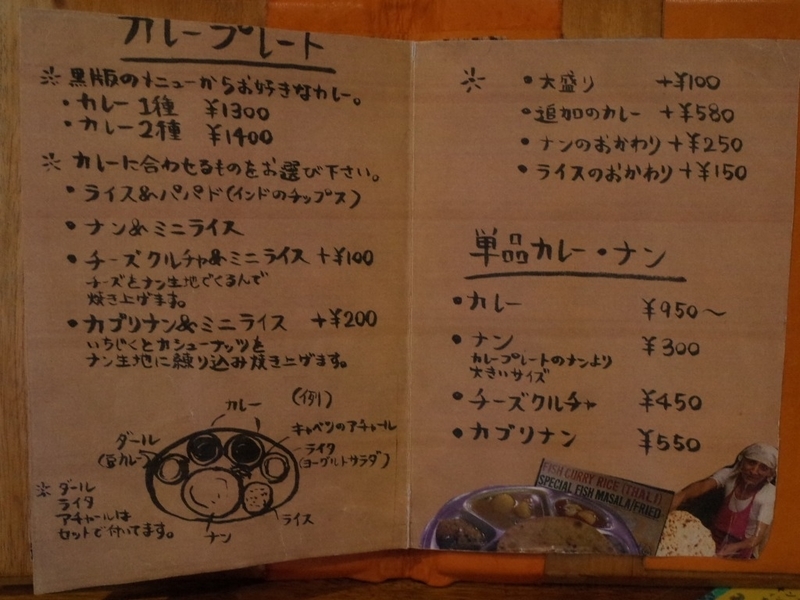 カレープレート
※ 黒版のメニューからお好きなカレー。
・カレー1種 ¥1300
・カレー2種 ¥1400
※ カレーに合わせるものをお選び下さい。
・ライス&パパド(インドのチップス)
・ナン&ミニライス
・チーズクルチャ&ミニライス +¥100
チーズとナン生地でくるんで
焼き上げます。
・カブリナン&ミニライス +¥200
いちじくとカシューナッツを
ナン生地に練り込み焼き上げます。
カレー (例)
キャベツのアチャール
ダール
(豆カレー)
ライタ
(ヨーグルトサラダ)
ライス
ナン
※ ダール
ライタ
アチャールは
セットで付いてます。
※ ・大盛り +¥100
・追加のカレー +¥580
・ナンのおかわり +¥250
・ライスのおかわり +¥150
単品カレー・ナン
・カレー ¥950〜
・ナン ¥300
カレープレートのナンより
大きいサイズ
・チーズクルチャ ¥450
・カブリナン ¥550
FISH CURRY RICE (THALI)
SPECIAL FISH MASALA/FRIED